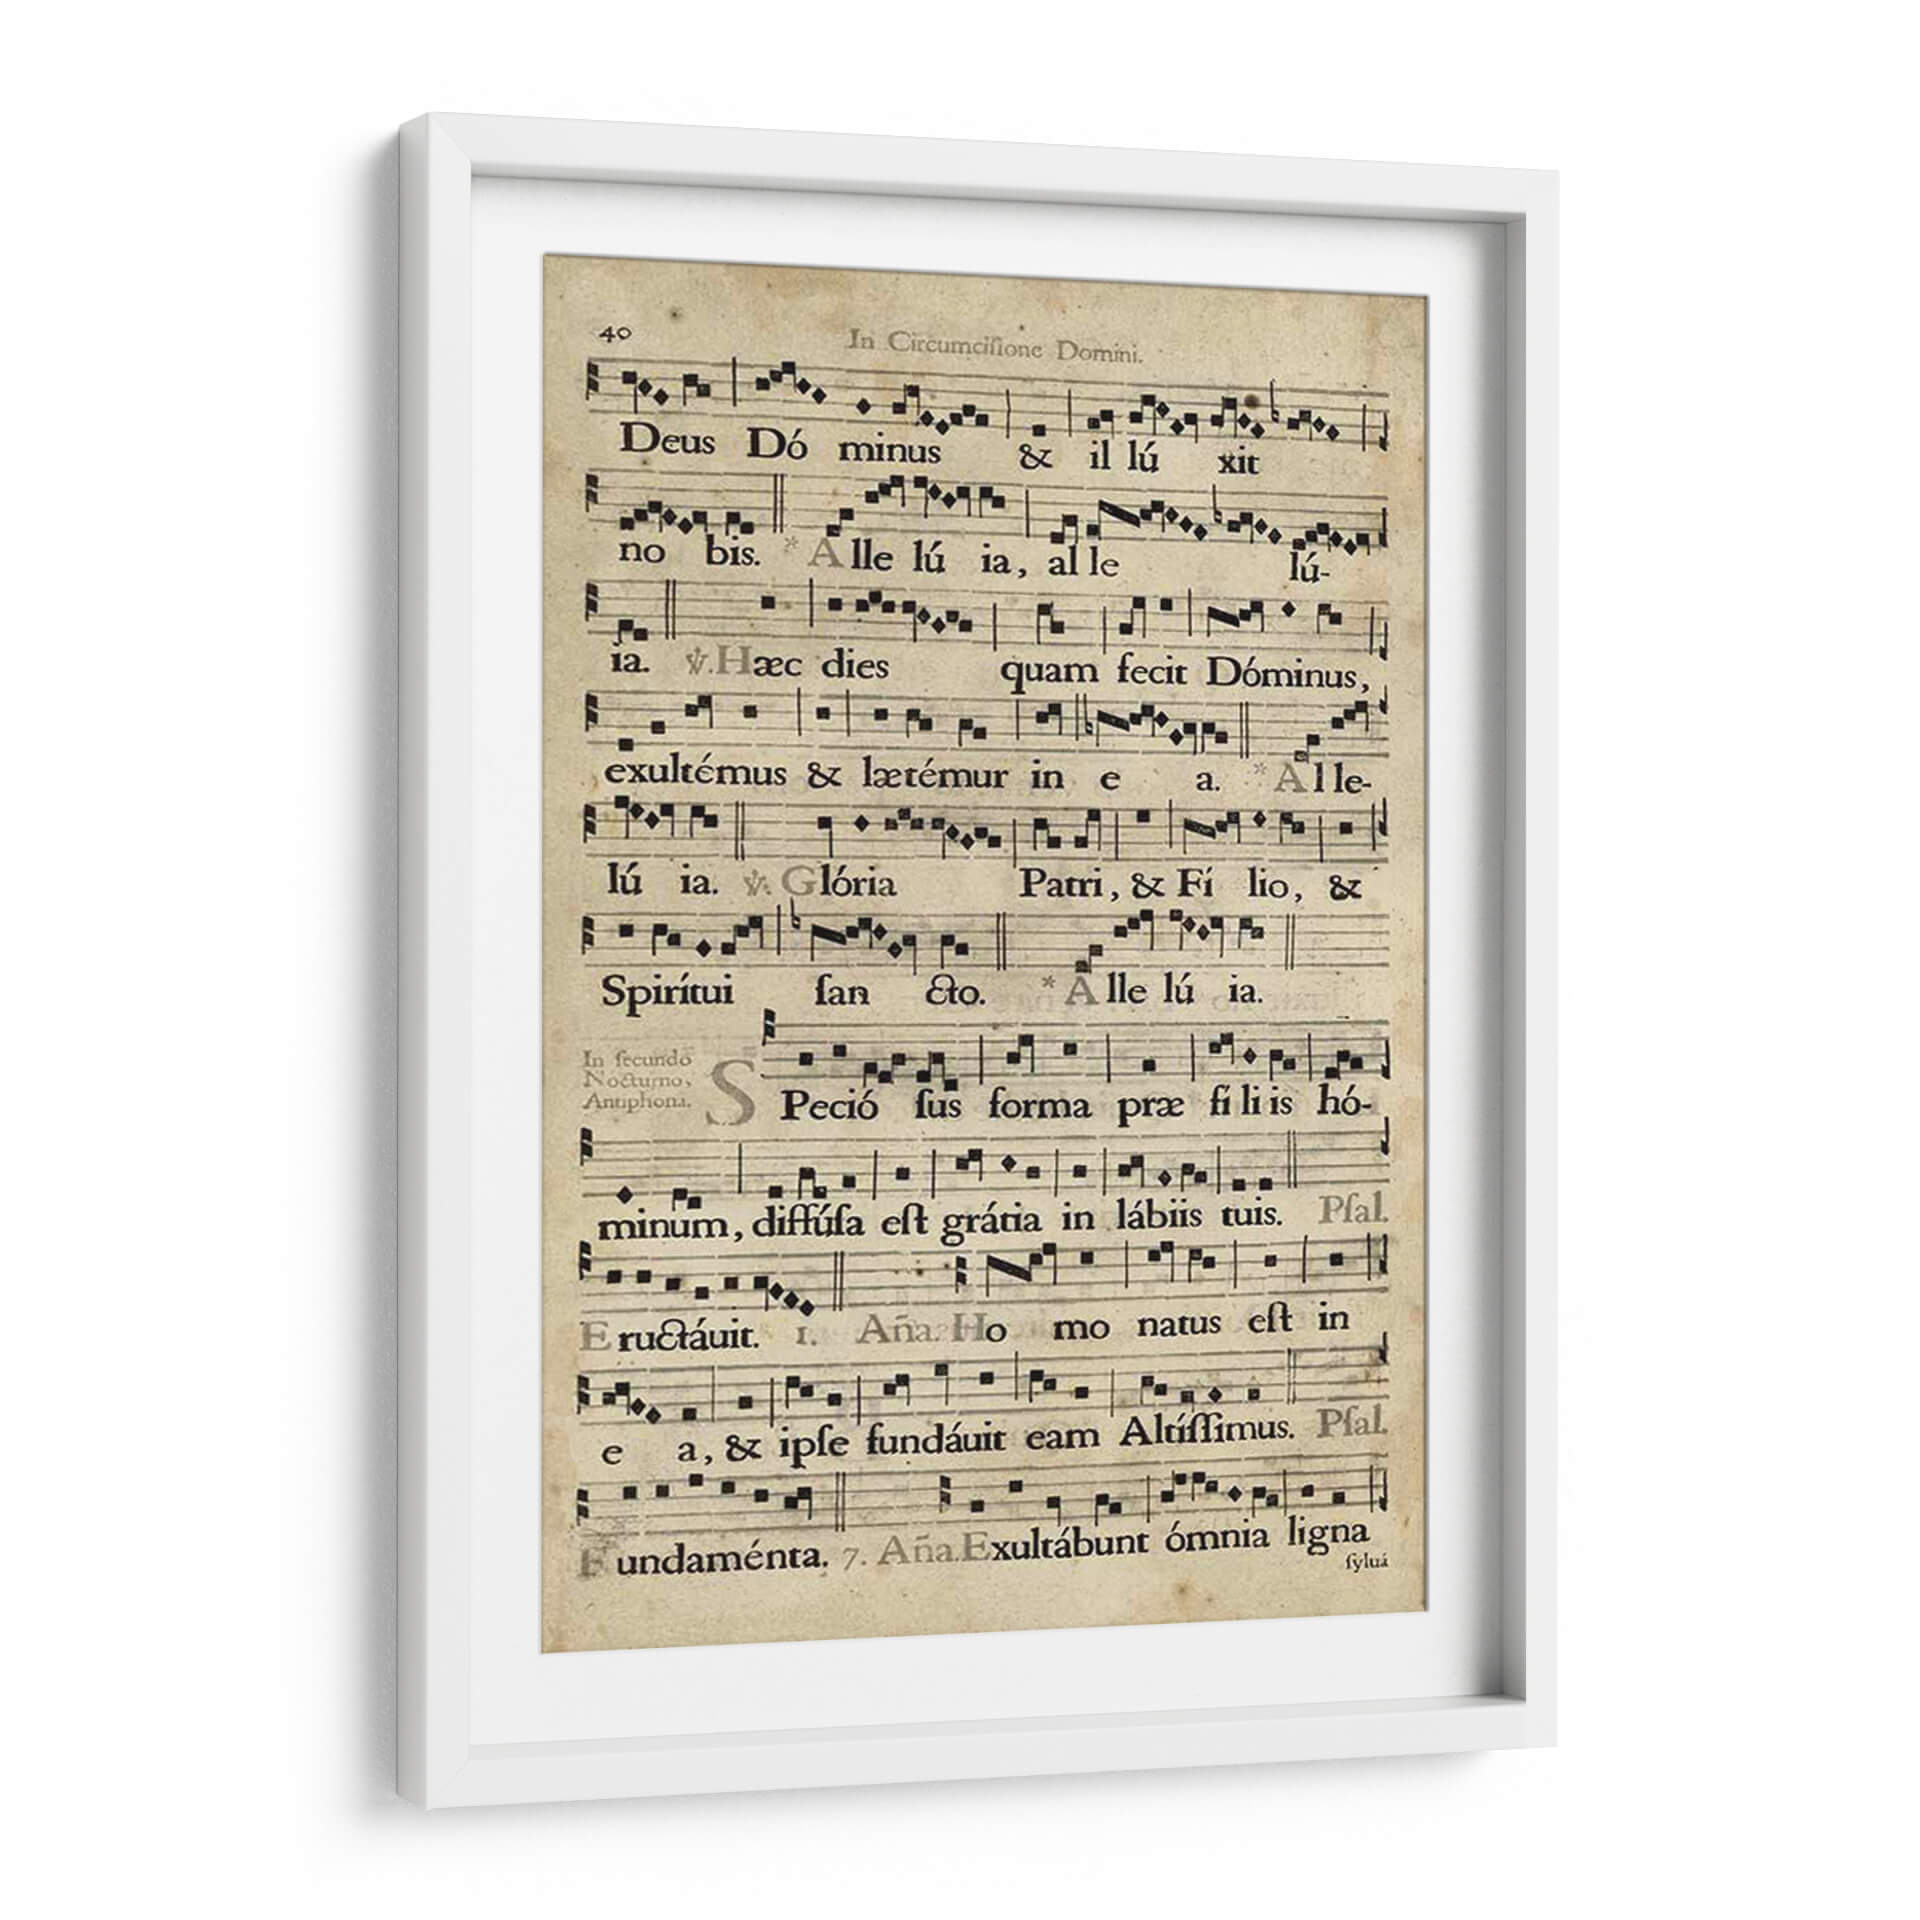 40
In Circumciſione Domini.
Deus Dó minus & il lú xit
no bis. * A lle lú ia, al le lú-
ia. ℣. Hæc dies quam fecit Dóminus,
exultémus & lætémur in e a. * Al le-
lú ia. ℣. Glória Patri, & Fí lio, &
Spirítui ſan cto. * A lle lú ia.
In ſecundō
Nocturno,
Antiphona.
SPeció ſus forma præ fi li is hó-
minum, diffúſa eſt grátia in lábiis tuis. Pſal.
Eructáuit. 1. Aña. Ho mo natus eſt in
e a, & ipſe fundáuit eam Altíſſimus. Pſal.
Fundaménta. 7. Aña. Exultábunt ómnia ligna
ſyluá